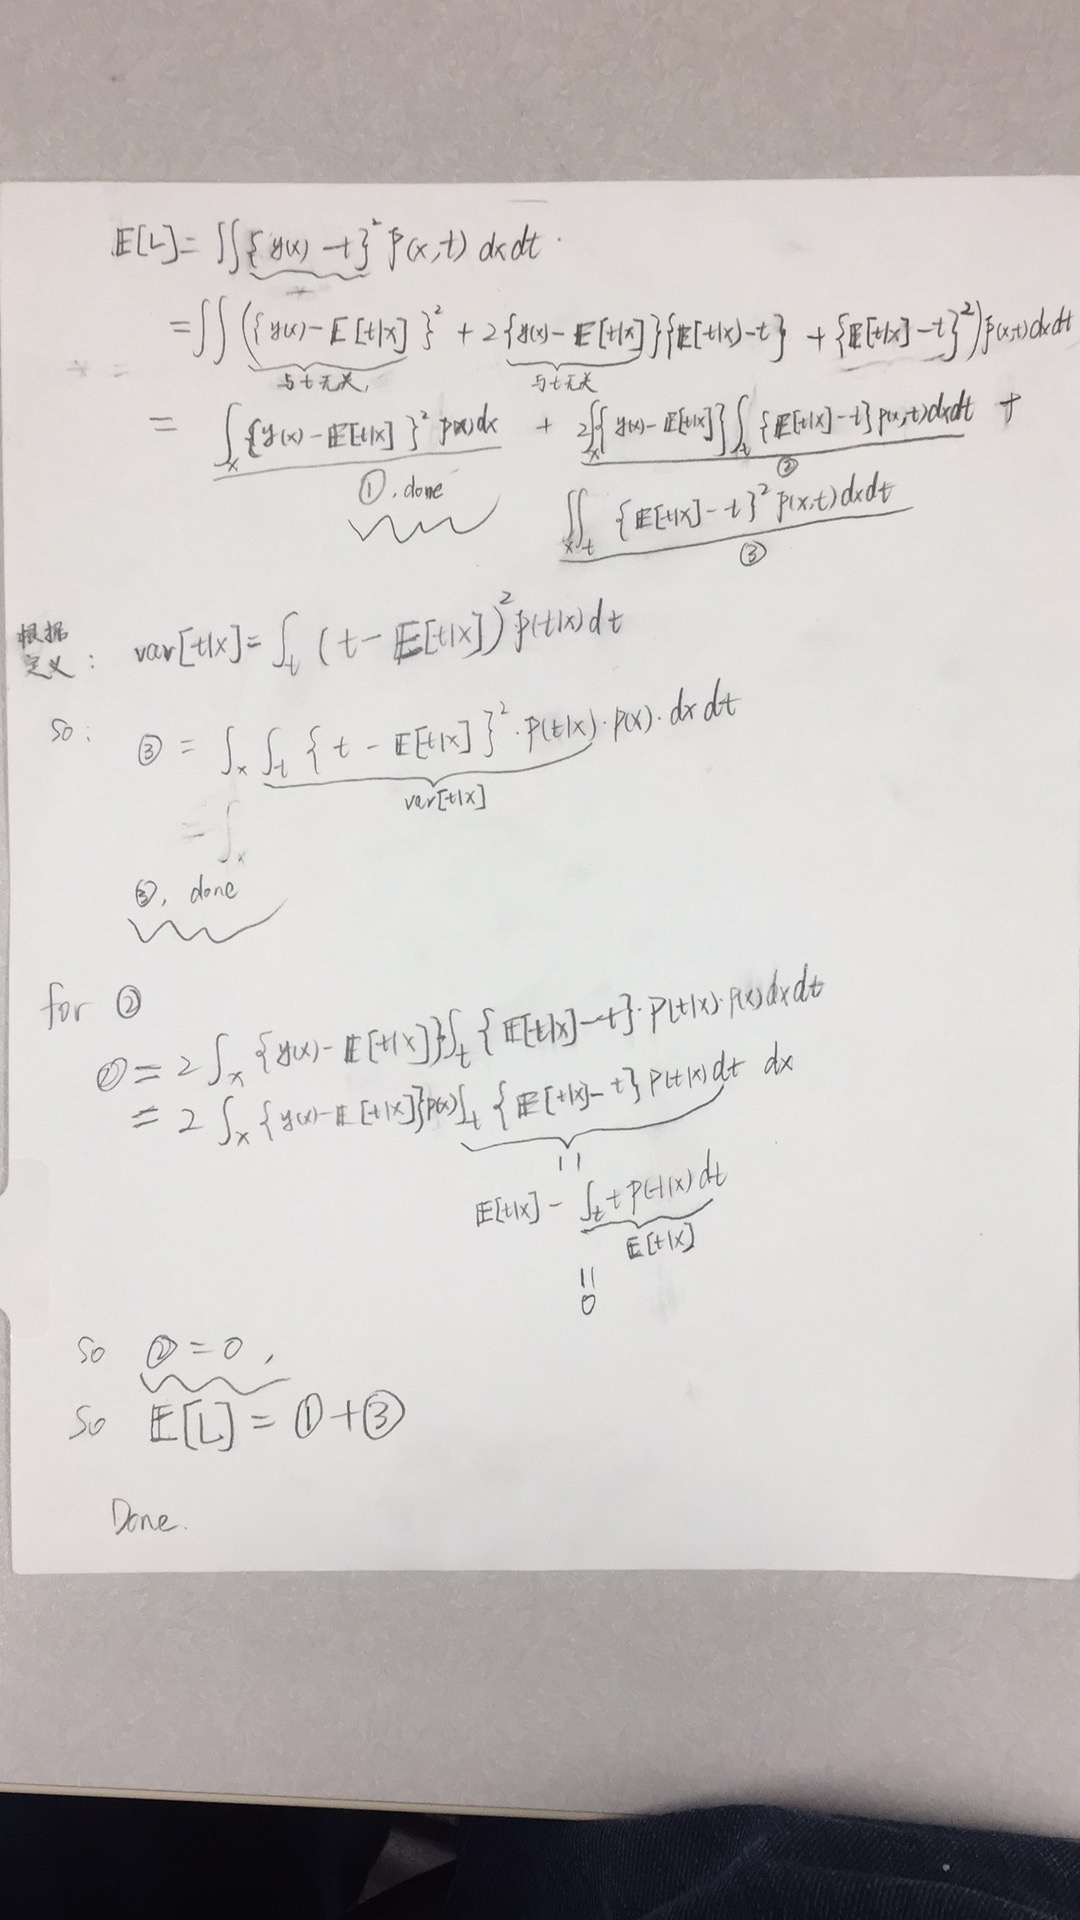 E[L] = ∬ {y(x) − t}² p(x,t) dxdt.
= ∫∫ ({y(x) − E[t|x]}² + 2{y(x) − E[t|x]}{E[t|x) − t} + {E[t|x] − t}²) p(x,t) dxdt
与t无关, 与t无关
= ∫ₓ {y(x) − E[t|x]}² p(x) dx + 2∫ₓ{y(x) − E[t|x]} ∫ₜ {E[t|x] − t} p(x,t) dxdt +
①, done ②
∬ₓ,ₜ {E[t|x] − t}² p(x,t) dxdt
③
根据
定义: var[t|x] = ∫ₜ (t − E[t|x])² p(t|x) dt
so: ③ = ∫ₓ ∫ₜ {t − E[t|x]}² · p(t|x) · p(x) · dx dt
var[t|x]
= ∫ₓ
③, done
for ②
② = 2 ∫ₓ {y(x) − E[t|x]} ∫ₜ {E[t|x] − t} · p(t|x) · p(x) dxdt
= 2 ∫ₓ {y(x) − E[t|x]} p(x) ∫ₜ {E[t|x] − t} p(t|x) dt dx
||
E[t|x] − ∫ₜ t p(t|x) dt
E[t|x]
||
0
so ② = 0,
so E[L] = ① + ③
Done.